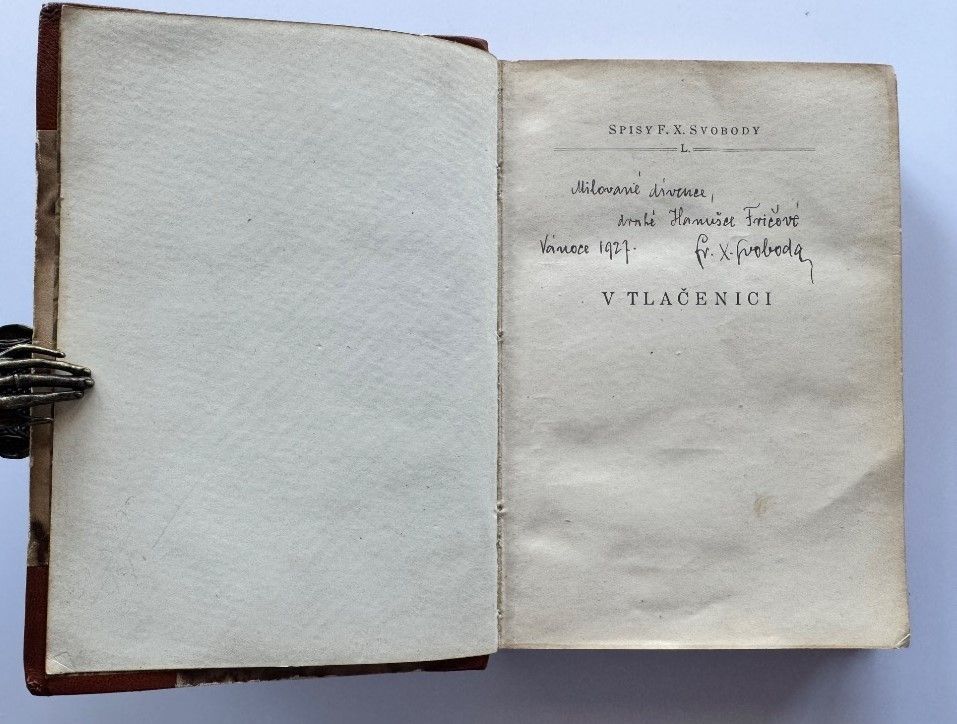 SPISY F. X. SVOBODY
L.
Milované dívence,
drahé Hanušce Fričové
Vánoce 1927. Fr. X. Svoboda
V TLAČENICI